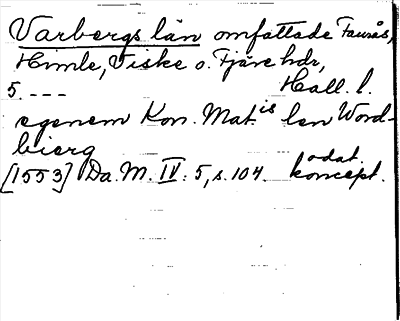 Varbergs län omfattade Faurås,
Himle, Viske o. Fjäre hdr,
5. --- Hall. l.
egenem Kon. Mat.is len Word-
bierg odat.
[1553] Da. M. IV: 5, s. 104. koncept.